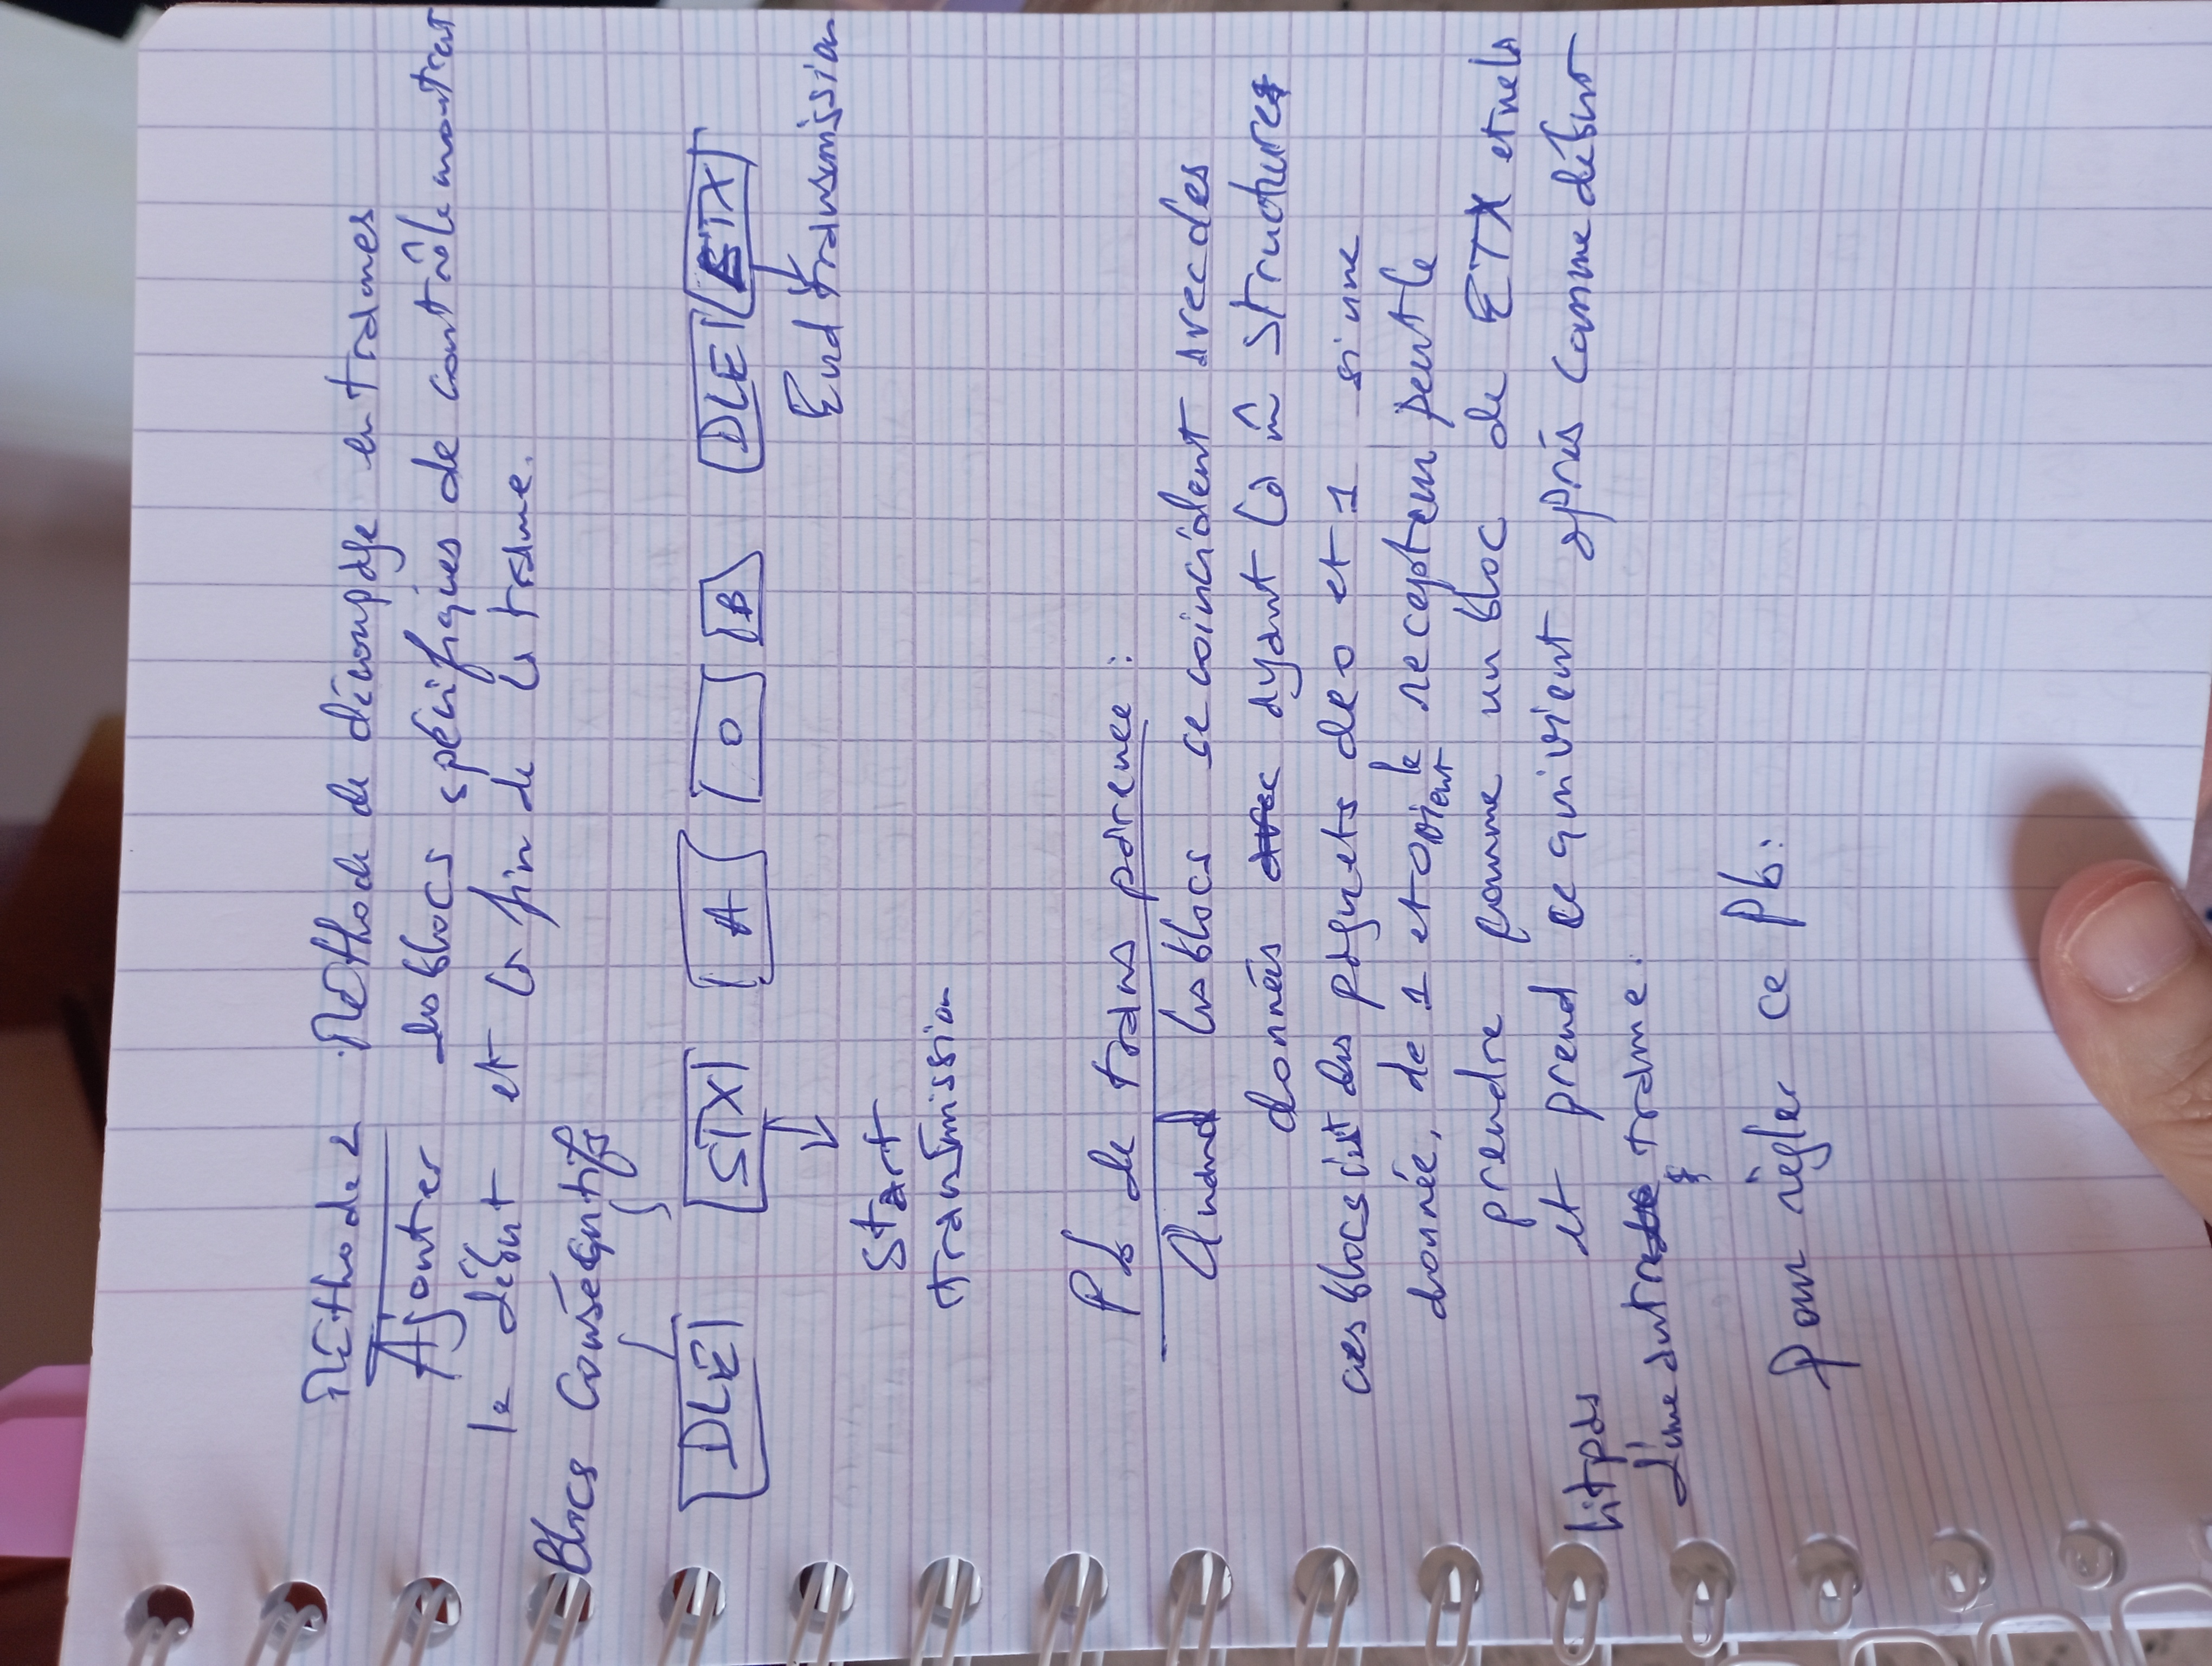 Méthode 2 Méthode de découpage en trames
Ajouter des blocs spécifiques de contrôle montrant
le début et la fin de la trame.
Blocs Consécutifs
DLE STX A O B DLE ETX
End transmission
Start
transmission
Pb de transparence :
Quand les blocs se coincident avec des
données avec ayant la m̂ structure
ces blocs c'est des paquets de 0 et 1 si une
donnée, de 1 et 0 vient le recepteur peut le
prendre comme un bloc de ETX et ne la
lit pas et prend ce qui vient après comme début
d'une autre trame.
Pour règler ce Pb :